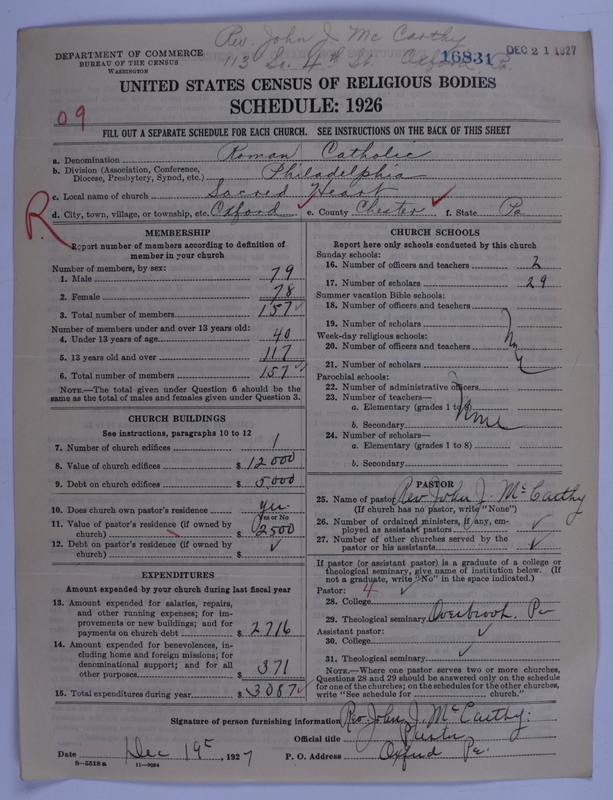 Rev. John J. McCarthy
113 So. 4th St. Oxford, Pa.
16831
DEC 21 1927
DEPARTMENT OF COMMERCE
BUREAU OF THE CENSUS
WASHINGTON
UNITED STATES CENSUS OF RELIGIOUS BODIES
SCHEDULE: 1926
09
FILL OUT A SEPARATE SCHEDULE FOR EACH CHURCH. SEE INSTRUCTIONS ON THE BACK OF THIS SHEET
a. Denomination Roman Catholic
b. Division (Association, Conference, Diocese, Presbytery, Synod, etc.) Philadelphia
c. Local name of church Sacred Heart
R
d. City, town, village, or township, etc. Oxford e. County Chester f. State Pa
MEMBERSHIP
Report number of members according to definition of
member in your church
Number of members, by sex:
1. Male 79
2. Female 78
3. Total number of members 157
Number of members under and over 13 years old:
4. Under 13 years of age 40
5. 13 years old and over 117
6. Total number of members 157
NOTE.—The total given under Question 6 should be
same as the total of males and females given under Question 3.
CHURCH BUILDINGS
See instructions, paragraphs 10 to 12
7. Number of church edifices 1
8. Value of church edifices $ 12000
9. Debt on church edifices $ 5000
10. Does church own pastor's residence yes
Yes or No
11. Value of pastor's residence (if owned by
church) $ 2500
12. Debt on pastor's residence (if owned by
church) $ ✓
EXPENDITURES
Amount expended by your church during last fiscal year
13. Amount expended for salaries, repairs,
and other running expenses; for im-
provements or new buildings; and for
payments on church debt $ 2716
14. Amount expended for benevolences, in-
cluding home and foreign missions; for
denominational support; and for all
other purposes $ 371
15. Total expenditures during year $ 3087
CHURCH SCHOOLS
Report here only schools conducted by this church
Sunday schools:
16. Number of officers and teachers 2
17. Number of scholars 29
Summer vacation Bible schools:
18. Number of officers and teachers
19. Number of scholars
Week-day religious schools:
20. Number of officers and teachers
21. Number of scholars
Parochial schools:
22. Number of administrative officers
23. Number of teachers—
a. Elementary (grades 1 to 8) None
b. Secondary
24. Number of scholars—
a. Elementary (grades 1 to 8)
b. Secondary
PASTOR
25. Name of pastor Rev John J. McCarthy
(If church has no pastor, write "None")
26. Number of ordained ministers, if any, em-
ployed as assistant pastors ✓
27. Number of other churches served by the
pastor or his assistants ✓
If pastor (or assistant pastor) is a graduate of a college or
theological seminary, give name of institution below. (If
not a graduate, write "No" in the space indicated.)
Pastor: 4
28. College ✓
29. Theological seminary Overbrook, Pa
Assistant pastor:
30. College ✓
31. Theological seminary ✓
NOTE.—Where one pastor serves two or more churches,
Questions 28 and 29 should be answered only on the schedule
for one of the churches; on the schedules for the other churches,
write "See schedule for church."
Signature of person furnishing information Rev. John J. McCarthy.
Official title Pastor
Date Dec 19th, 1927 P. O. Address Oxford Pa.
8-5518a 11-9084